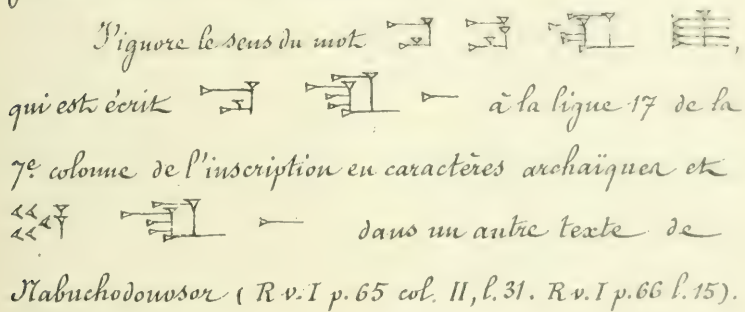 J'ignore le sens du mot
qui est écrit à la ligne 17 de la
7e colonne de l'inscription en caractères archaïques et
dans un autre texte de
Nabuchodonosor ( R v. I p. 65 col. II, l. 31. R v. I p. 66 l. 15).